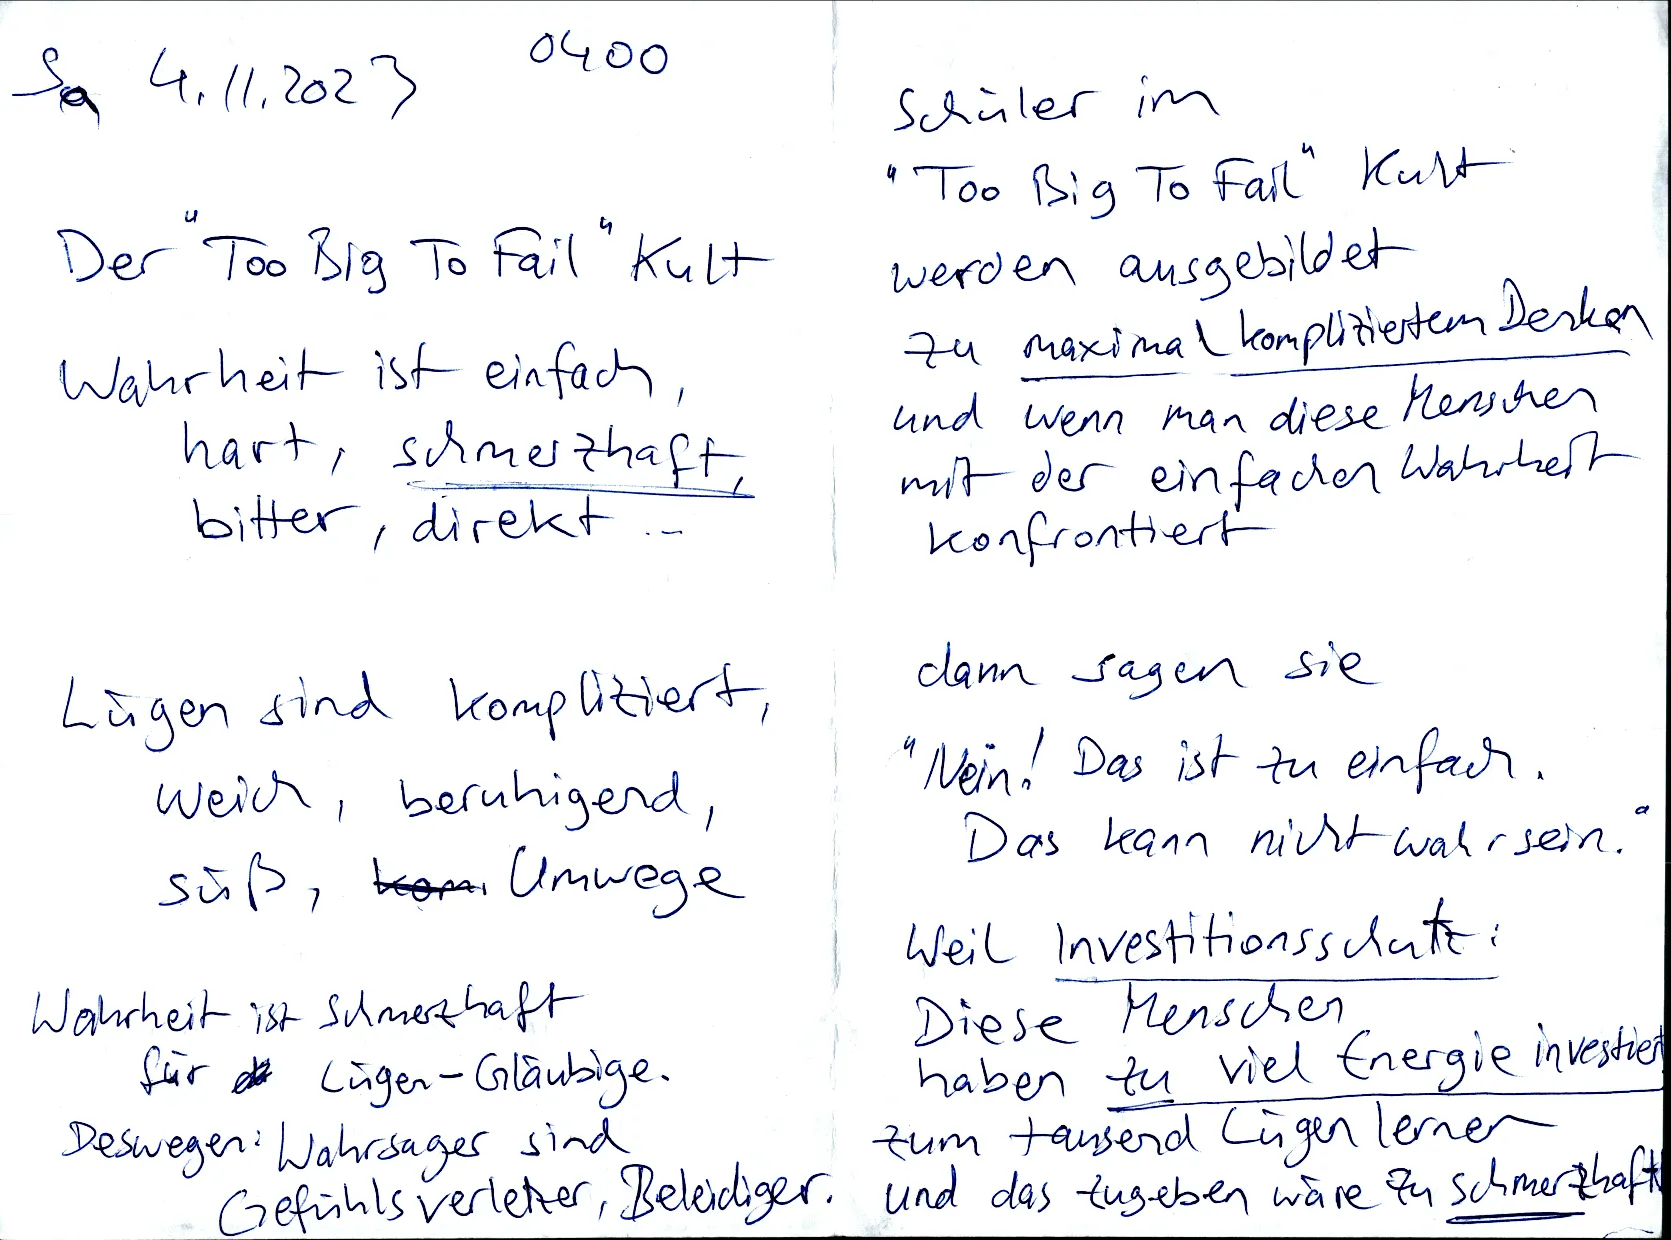 Sa 4.11.2023 0400
Der "Too Big To Fail" Kult
Wahrheit ist einfach,
hart, schmerzhaft,
bitter, direkt ...
Lügen sind kompliziert,
weich, beruhigend,
süß, kom. Umwege
Wahrheit ist schmerzhaft
für Lügen-Gläubige.
Deswegen: Wahrsager sind
Gefühlsverletzer, Beleidiger.
Schüler im
"Too Big To Fail" Kult
werden ausgebildet
zu maximal kompliziertem Denken
und wenn man diese Menschen
mit der einfachen Wahrheit
konfrontiert
dann sagen sie
"Nein! Das ist zu einfach.
Das kann nicht wahr sein."
Weil Investitionsschutz:
Diese Menschen
haben zu viel Energie investiert
zum tausend Lügen lernen
und das zugeben wäre zu schmerzhaft